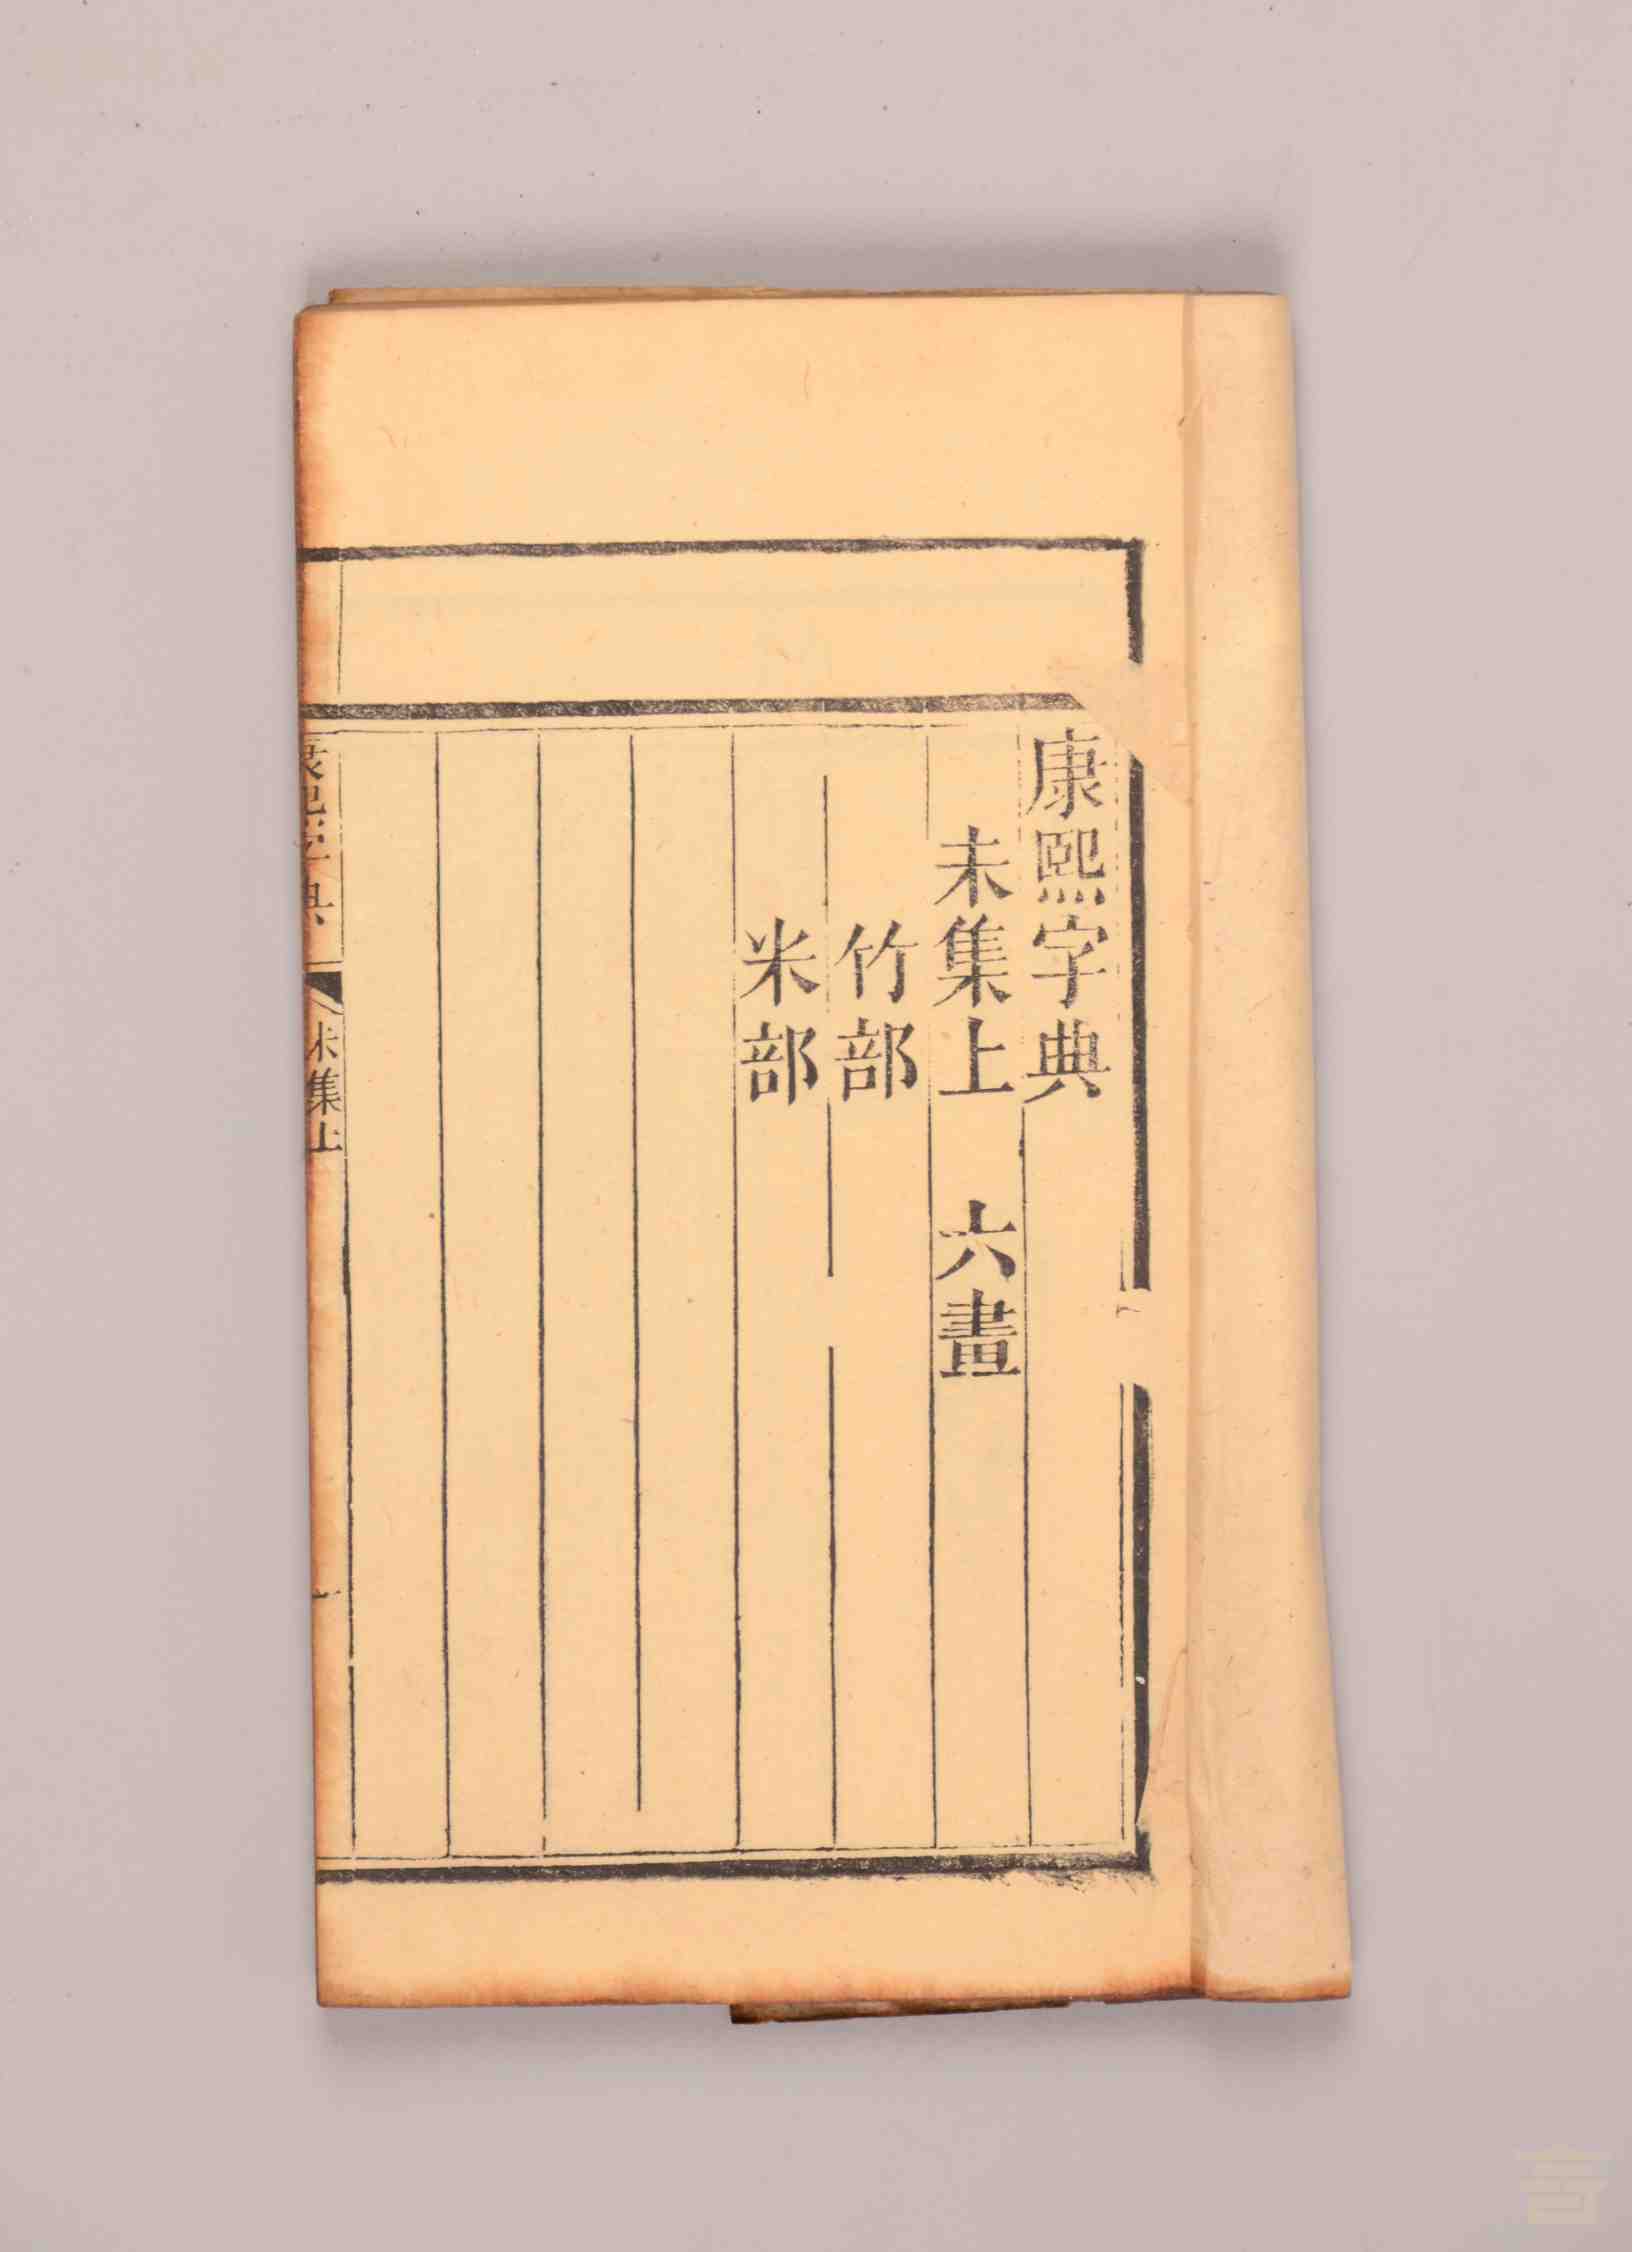 康熙字典
未集上　六畫
竹部
米部
康熙字典
未集上
一